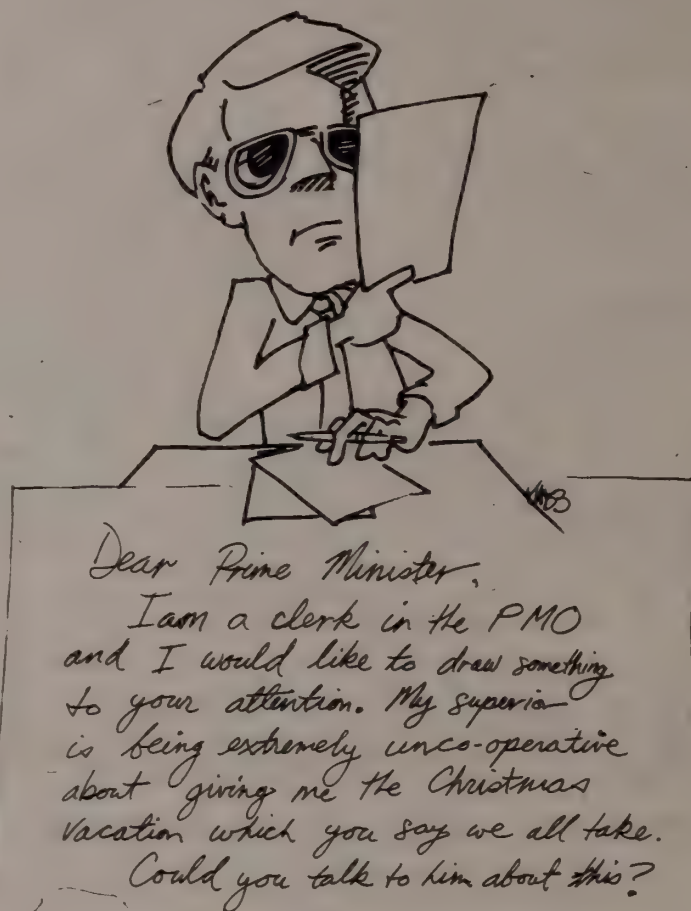 Dear Prime Minister,
I am a clerk in the PMO
and I would like to draw something
to your attention. My superior
is being extremely unco-operative
about giving me the Christmas
vacation which you say we all take.
Could you talk to him about this?